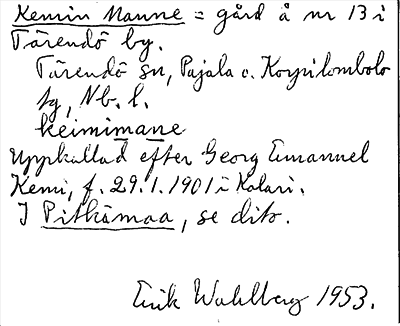 Kemin Manne = gård å nr 13 i
Tärendö by.
Tärendö sn, Pajala o. Korpilombolo
tg, Nb. l.
keimimane
Uppkallad efter Georg Emanuel
Kemi, f. 29.1.1901 i Kolari.
I Pitkämaa, se dito.
Erik Wahlberg 1953.